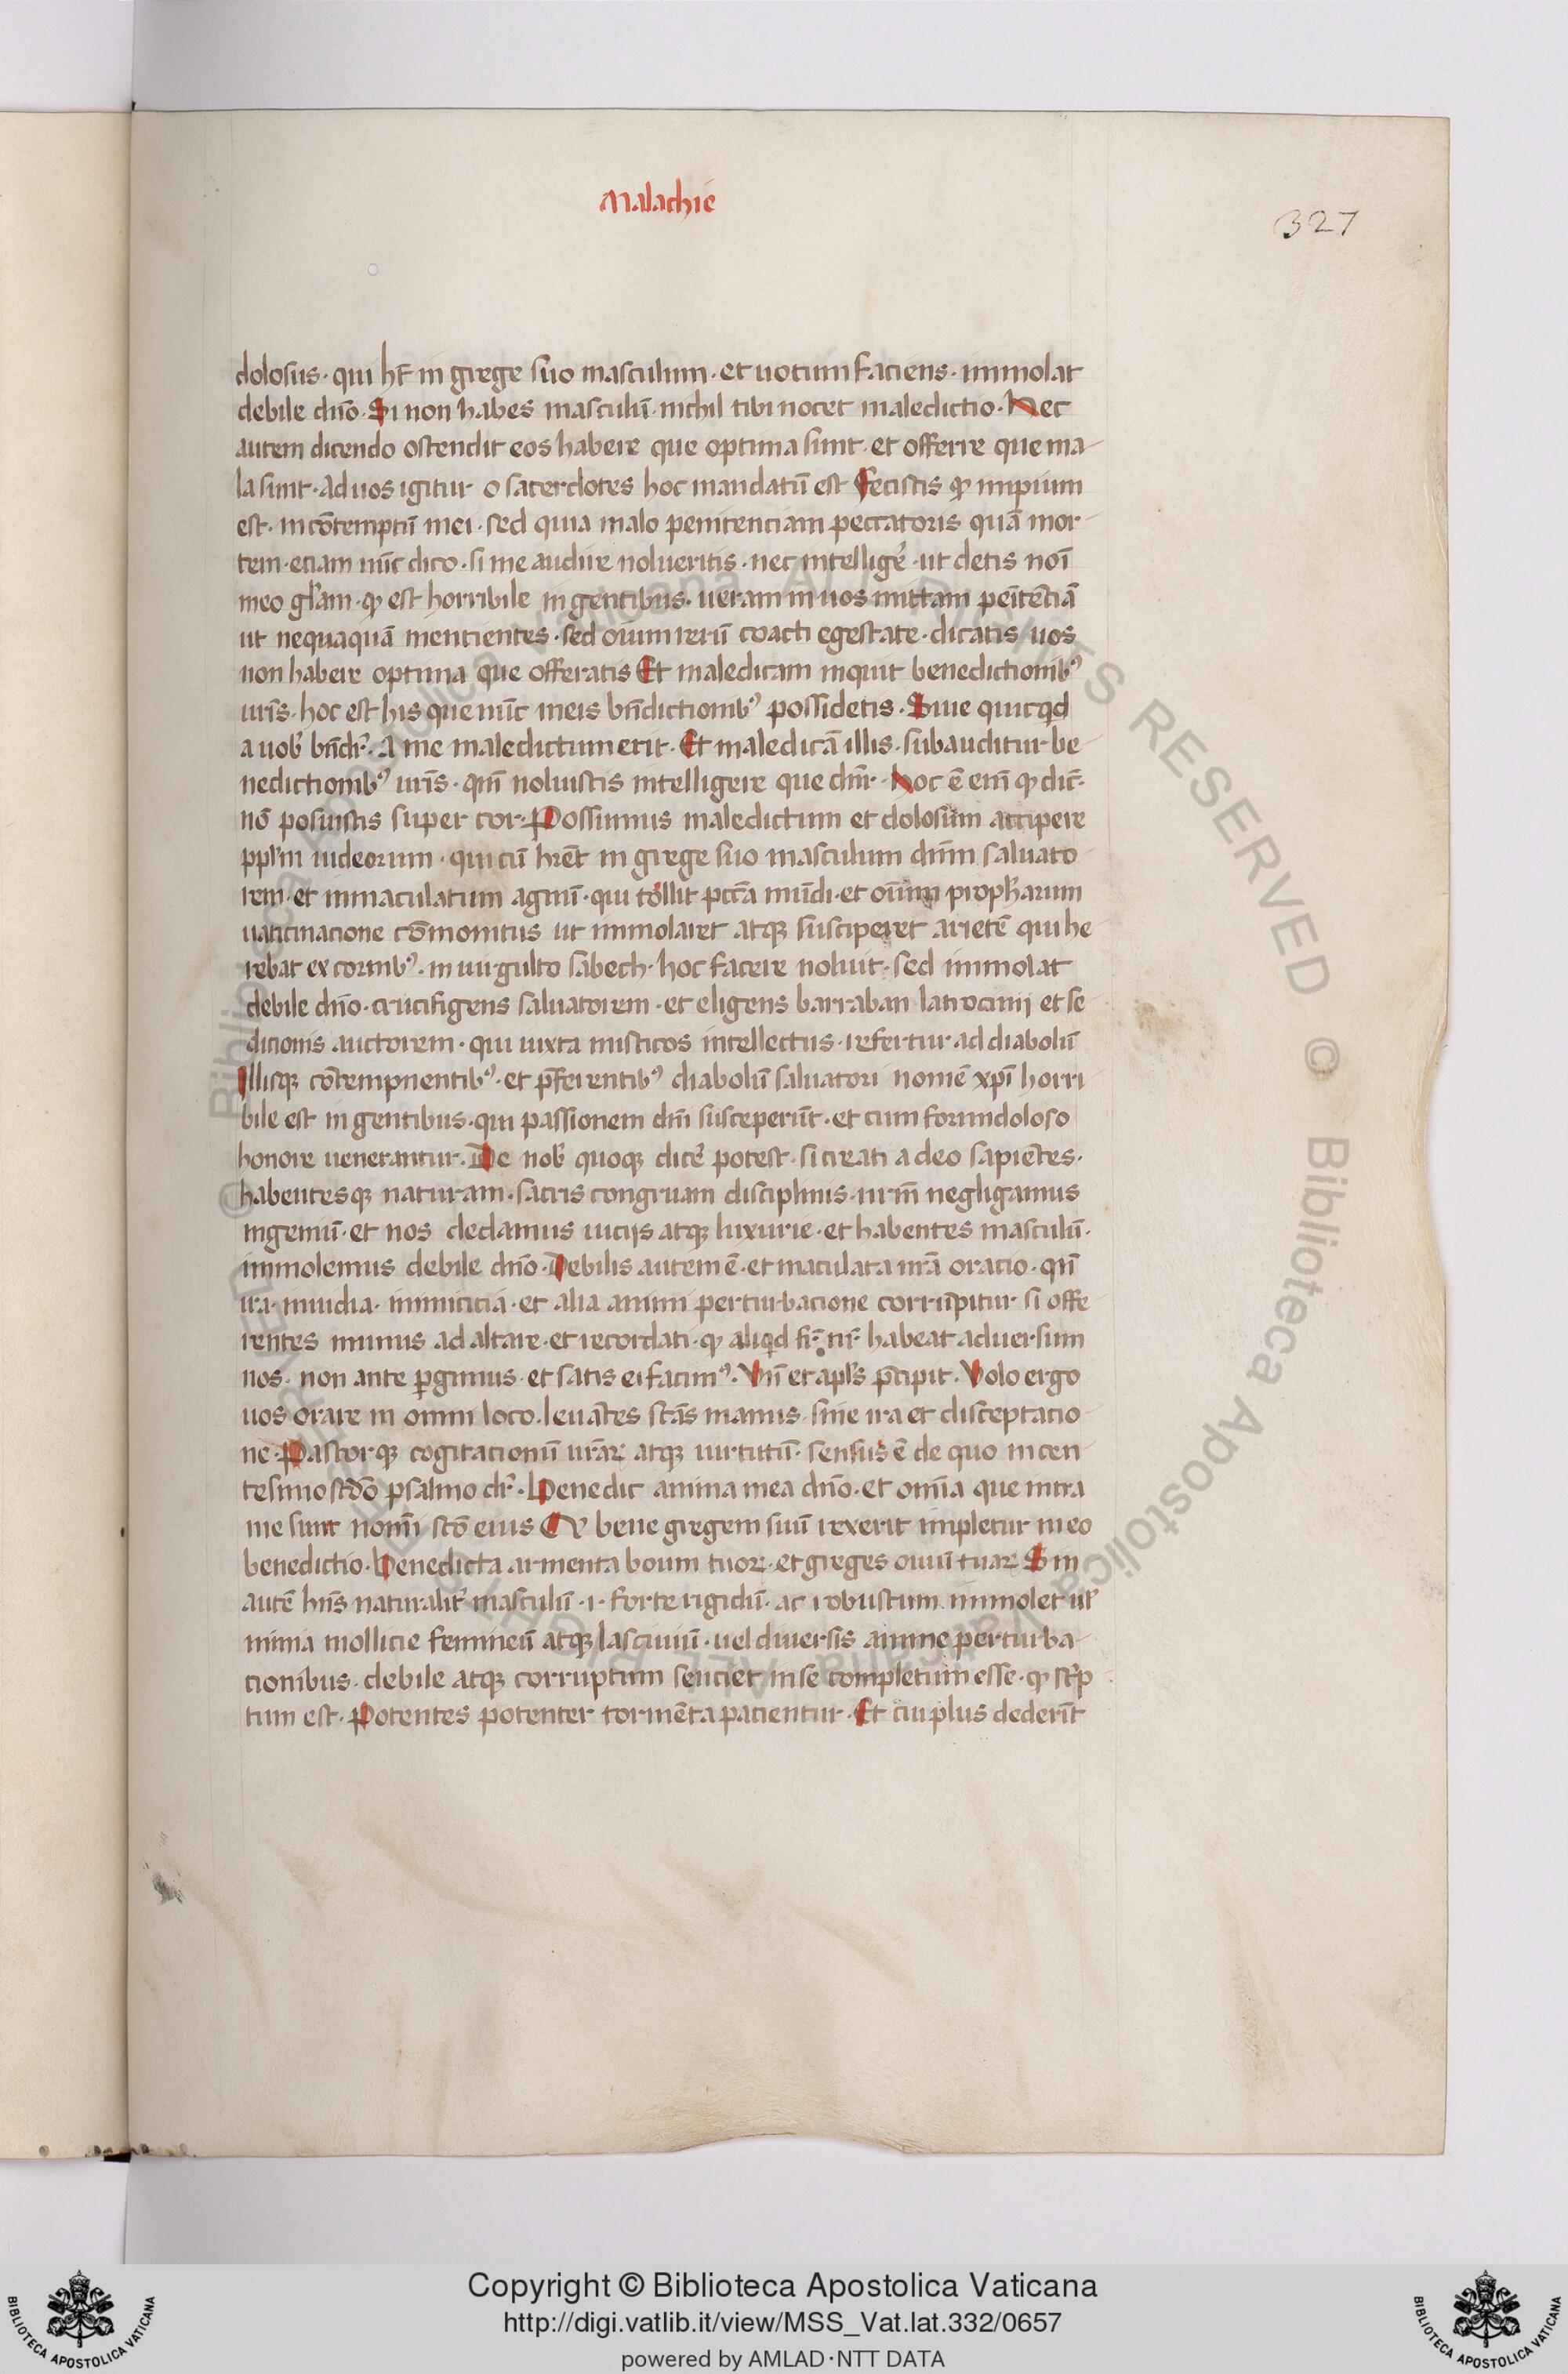 Malachie
327
dolosus · qui hr̄ in grege suo masculum · et uotum faciens · immolat
debile dn̄o · Si non habes masculū · nichil tibi nocet maledictio · Hec
autem dicendo ostendit eos habere que optima sunt · et offerre que ma
la sunt · ad uos igitur o sacerdotes hoc mandatū est Fecistis qȝ impium
est · in cōtemptū mei · sed quia malo penitenciam peccatoris quā mor
tem · eciam nūc dico · si me audire nolueritis · nec intelligē · ut detis noī
meo gl̄am · qȝ est horribile in gentibus · ueram in uos mittam peīt̄ecīā
ut nequaquā mentientes · sed ouium rerū coacti egestate · dicatis uos
non habere optima que offeratis Et maledicam inquit benedictionibꝰ
ur̄is · hoc est his que nūc meis bn̄dictionibꝰ possidetis · Siue quicqd
a uob̄ bn̄dr̄ · A me maledictum erit · Et maledicā illis · subauditur be
nedictionibꝰ ur̄is · qm̄ noluistis intelligere que dm̄r · Hoc ē em̄ qȝ dic̄ ·
nō posuistis super cor · Possumus maledictum et dolosum accipere
ppl̄m iudeorum · qui cū hn̄et in grege suo masculum dn̄m saluato
rem · et immaculatum agnū · qui tollit pcc̄a mūdi · et oūium proph̄arum
uaticinacione cōmonitus ut immolaret atqȝ susciperet arietē qui he
rebat ex cornibꝰ · in uirgulto sabech · hoc facere noluit · sed immolat
debile dn̄o · crucifigens saluatorem · et eligens barraban latrocinij et se
dicionis auctorem · qui iuxta misticos intellectus · refertur ad diabolū
Illisqȝ cōtempnentibꝰ · et p̄ferentibꝰ diabolū saluatori nomē xp̄i horri
bile est in gentibus · qui passionem dn̄i susceperūt · et cum formidoloso
honore uenerantur · De nob̄ quoqȝ dicē potest · si creati a deo sapiētes ·
habentesqȝ naturam · sacris congruam disciplinis · nr̄m negligamus
ingeniū · et nos dedamus uicijs atqȝ luxurie · et habentes masculū ·
immolemus debile dn̄o · Debilis autem ē · et maculata nr̄a oracio · qn̄
ira · inuidia · inimicicia · et alia animi perturbacione corrūpitur si offe
rentes munus ad altare · et recordati · qȝ aliqd fr̄ · nr̄ habeat aduersum
nos · non ante pergimus · et satis ei facimꝰ · Vn̄ et apl̄s p̄cipit · Volo ergo
uos orare in omni loco · leuātes sc̄as manus · sine ira et disceptacio
ne · Pastorqȝ cogitacionū ur̄aꝝ atqȝ uirtutū · sensus ē de quo in cen
tesimo sc̄do psalmo dr̄ · Benedic anima mea dn̄o · et omīa que intra
me sunt nomī sc̄o eius Qȝ bene gregem suū rexerit impletur in eo
benedictio · Benedicta armenta boum tuoꝝ · et greges ouiū tuaꝝ Sin
autē hn̄s naturalit̄ masculū · i · forte rigidū · ac robustum immolet ul̄
nimia mollicie femineū atqȝ lasciuiū · uel diuersis anime perturba
cionibus · debile atqȝ corruptum senciet in se completum esse · qȝ sc̄p
tum est · Potentes potenter tormēta pacientur · Et cui plus dederīt
© Biblioteca Apostolica Vaticana ALL RIGHTS RESERVED © Biblioteca Apostolica Vaticana ALL RIGHTS RESERVED
Copyright © Biblioteca Apostolica Vaticana
http://digi.vatlib.it/view/MSS_Vat.lat.332/0657
powered by AMLAD·NTT DATA
BIBLIOTECA APOSTOLICA VATICANA
BIBLIOTECA APOSTOLICA VATICANA